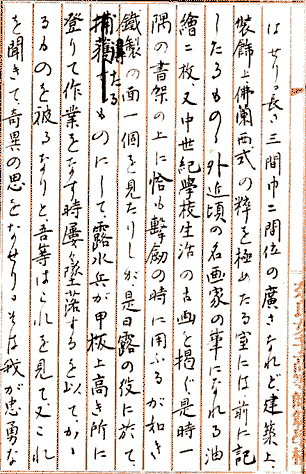 はせり。長さ三間巾二間位の廣さなれど建築上
裝飾上佛蘭西式の粋を極めたる室には前に記
したるもの〻外近頃の名画家の筆になれる油
繪二枚、又中世紀學校生活の古画を掲ぐ是時一
隅の書架の上に恰も擊劍の時に用ふるが如き
鐵製の面一個を見たりしが、是日露の役に於て
捕獲したるものにして露水兵が甲板上高き所に
登りて作業をなす時屢々墜落するを以て、かゝ
るものを被るなりと、吾等はこれを見て又これ
を聞きて奇異の思をなせり。そは我が忠勇な